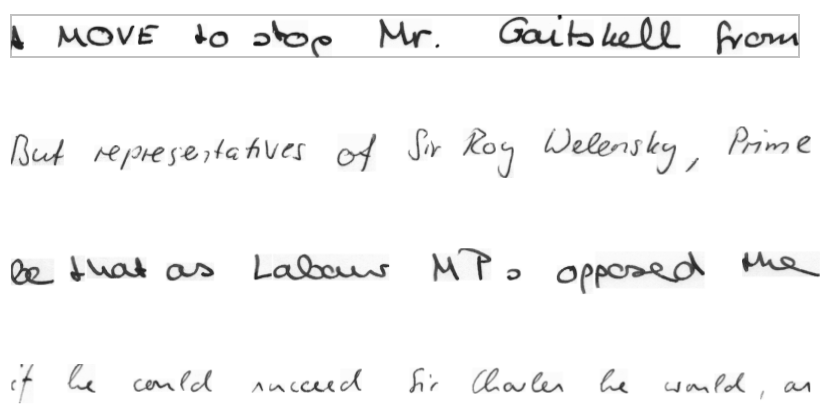 A MOVE to stop Mr. Gaitskell from
But representatives of Sir Roy Welensky, Prime
be that as Labour MPs opposed the
if he could succeed Sir Charles he would, as